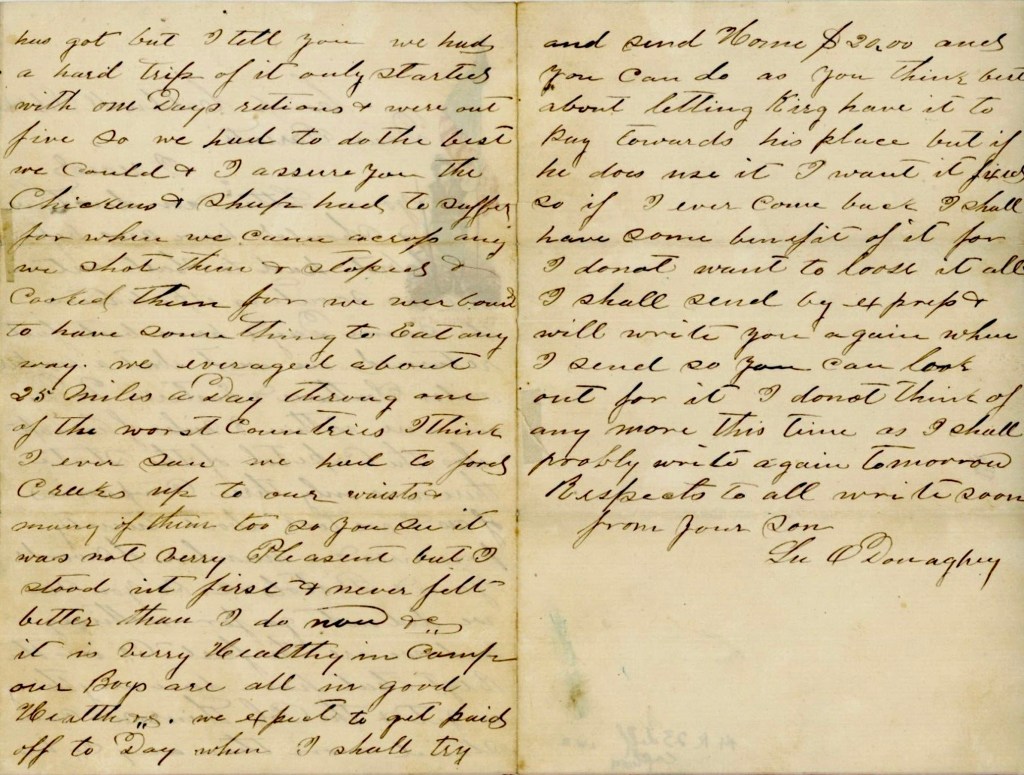 has got but I tell you we had
a hard trip of it only started
with one Days rations & were out
five so we had to do the best
we could & I assure you the
Chickens & sheep had to suffer
for when we came across any
we shot them & stoped &
Cooked them for we wer bound
to have some thing to Eat any
way. we everaged about
25 Miles a Day throug one
of the worst Countries I think
I ever saw we had to ford
Creeks up to our waists &
many of them too so you see it
was not verry Pleasent but I
stood it first & never felt
better than I do now &c
it is verry Healthy in Camp
our Boys are all in good
Health &c. we expect to get paid
off to Day when I shall try
and send Home $20.00 and
you can do as you think best
about letting King have it to
pay towards his place but if
he does use it I want it fixed
so if I ever come back I shall
have some benefit of it for
I donot want to loose it all
I shall send by express &
will write you again when
I send so you can look
out for it I donot think of
any more this time as I shall
probly write again tomorrow
Respects to all write soon
from your son
Lee O Donaghey